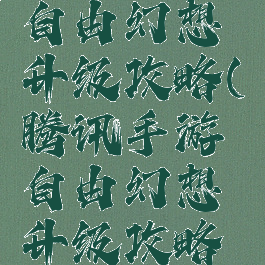 自由幻想
升级攻略(
腾讯手游
自由幻想
升级攻略